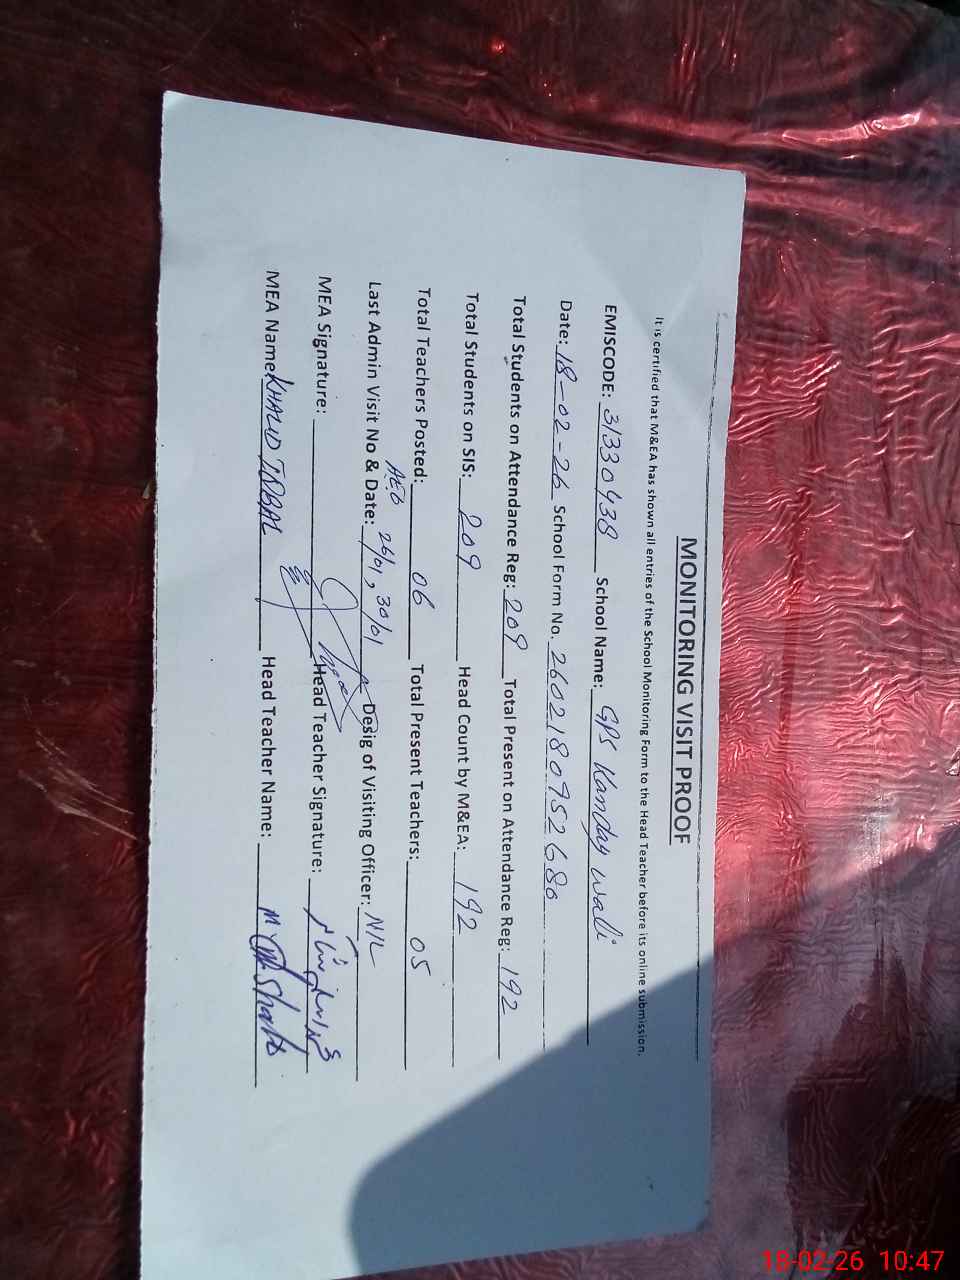 MONITORING VISIT PROOF
It is certified that M&EA has shown all entries of the School Monitoring Form to the Head Teacher before its online submission.
EMISCODE: 31330438 School Name: GPS Kanday wali
Date: 18-02-26 School Form No. 260218095268​0
Total Students on Attendance Reg: 209 Total Present on Attendance Reg: 192
Total Students on SIS: 209 Head Count by M&EA: 192
Total Teachers Posted: 06 Total Present Teachers: 05
AEO
Last Admin Visit No & Date: 26/01, 30/01 Desig of Visiting Officer: NIL
MEA Signature: Head Teacher Signature:
MEA Name KHALID IQBAL Head Teacher Name: M
18-02-26 10:47